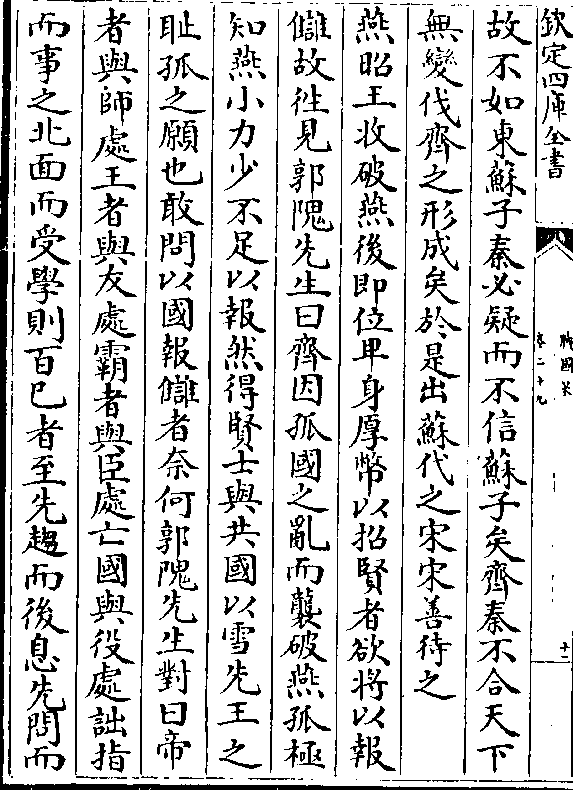 欽定四庫全書
戰國策
卷二十九
十二
故不如東蘇子秦必疑而不信蘇子矣齊秦不合天下
無變伐齊之形成矣於是出蘇代之宋宋善待之
燕昭王收破燕後即位卑身厚幣以招賢者欲將以報
讎故徃見郭隗先生曰齊因孤國之亂而襲破燕孤極
知燕小力少不足以報然得賢士與共國以雪先王之
耻孤之願也敢問以國報讎者奈何郭隗先生對曰帝
者與師處王者與友處霸者與臣處亡國與役處詘指
而事之北面而受學則百己者至先趨而後息先問而